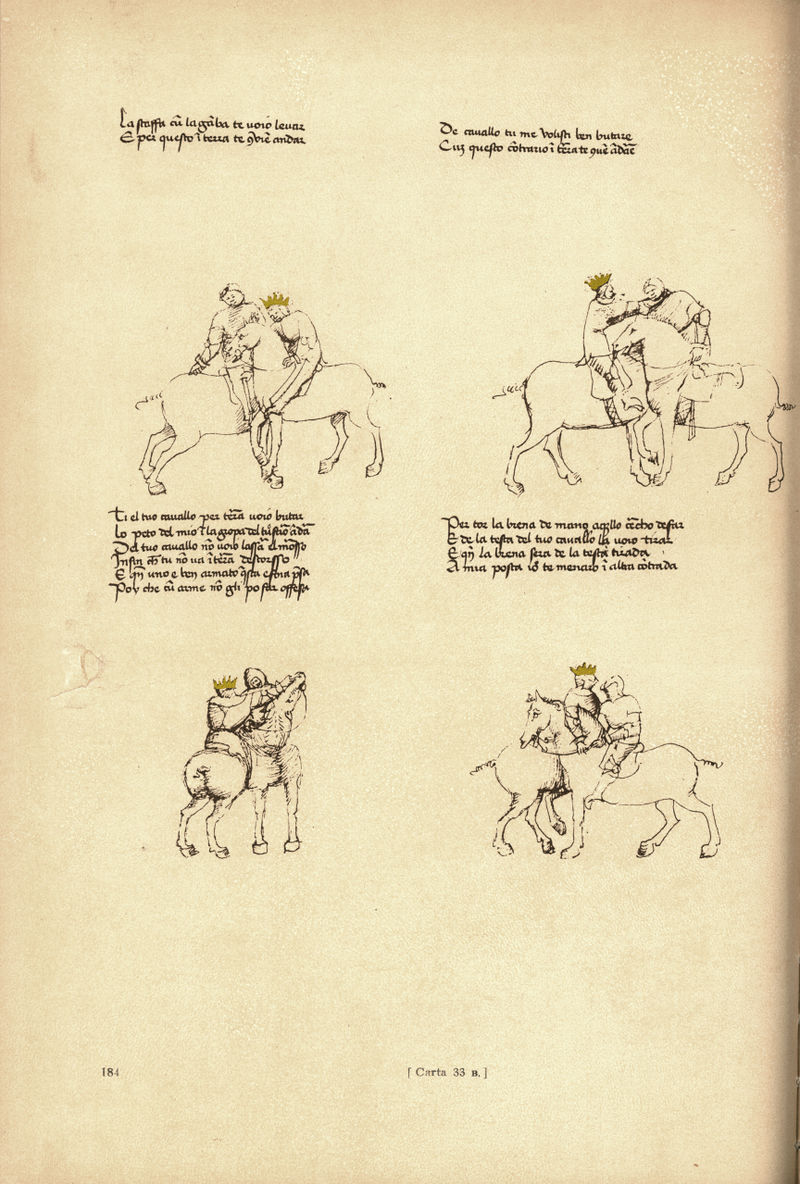 La staffa cũ la gãba te uoio leuar
E per questo ĩ terra te 9uiẽ andar
De cauallo tu me Volisti ben butare
Cuȝ questo cõtrario ĩ tẽra te 9uẽ ãdaẽ
Ti el tuo cauallo per tẽra uoio butar
Lo peto del mio ĩ la gropa del tuo ãdã
Del tuo cauallo nõ uoio lassã el morso
Infin chi tu nõ ua ĩ tẽra destorsso
E qñ uno e ben armato q̃sta e bona p̃sa
Poy che cũ arme nõ gli po far offesa
Per tor la brena de mano aq̃llo cẽcho desfar
E de la testa del tuo cauallo la uoio tirar
E qñ la brena sera de la testa tirada
A mia posta io te menaro ĩ altra cõtrada
184
[ Carta 33 B. ]